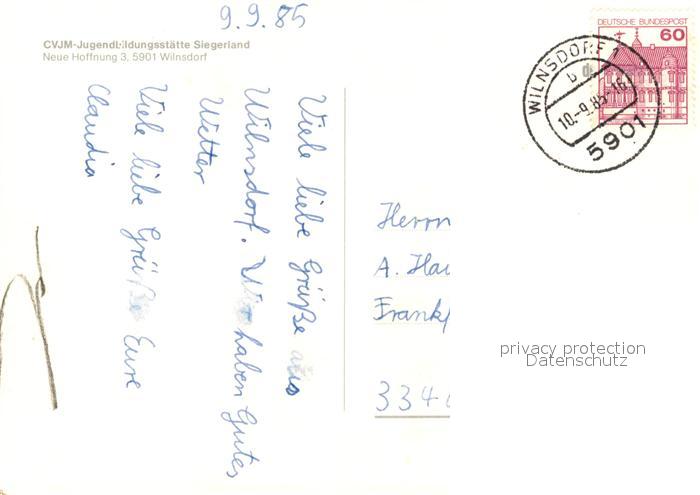 9.9.85
CVJM-Jugendbildungsstätte Siegerland
Neue Hoffnung 3, 5901 Wilnsdorf
Viele liebe Grüße aus
Wilnsdorf. Wir haben Gutes
Wetter
Viele liebe Grüße Eure
Claudia
DEUTSCHE BUNDESPOST
60
WILNSDORF 1
b
10.-9.85-16
5901
Herrn
A. Hau
Frankf
334
privacy protection
Datenschutz